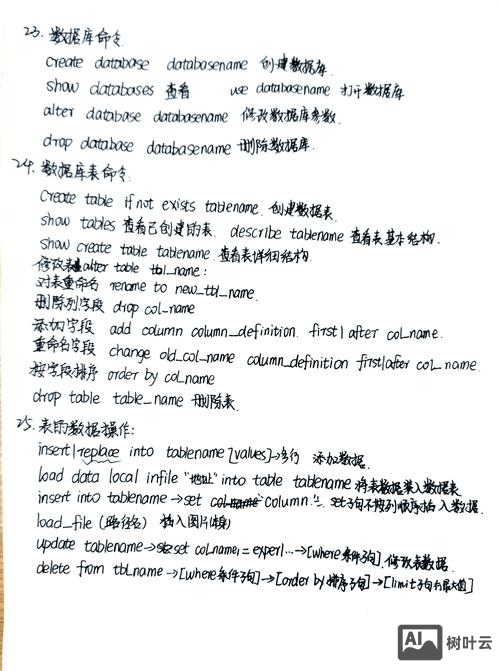 23. 数据库命令
create database databasename 创建数据库.
show databases 查看 use databasename 打开数据库
alter database databasename 修改数据库参数.
drop database databasename 删除数据库.
24. 数据库表命令.
create table if not exists tablename. 创建数据表.
show tables 查看已创建的表. describe tablename 查看表基本结构.
show create table tablename. 查看表详细结构.
修改表 alter table tbl_name:
对表重命名 rename to new_tbl_name.
删除列字段 drop col_name
添加字段 add column column_definition. first| after col_name.
重命名字段 change old_col_name column_definition first|after col_name.
按字段排序 order by col_name
drop table table_name 删除表.
25. 表的数据操作:
insert|replace into tablename [values]→多行 添加数据.
load data local infile "地址" into table tablename 将表数据装入数据表
insert into tablename→set column= set子句不按列顺序插入数据.
load_file (路径名) 插入图片
update tablename→set col_name1 = exper1...→[where条件子句]. 修改表数据.
delete from tbl_name→[where条件子句]→[order by 排序子句]→[limit子句 最大值]
AI 树叶云